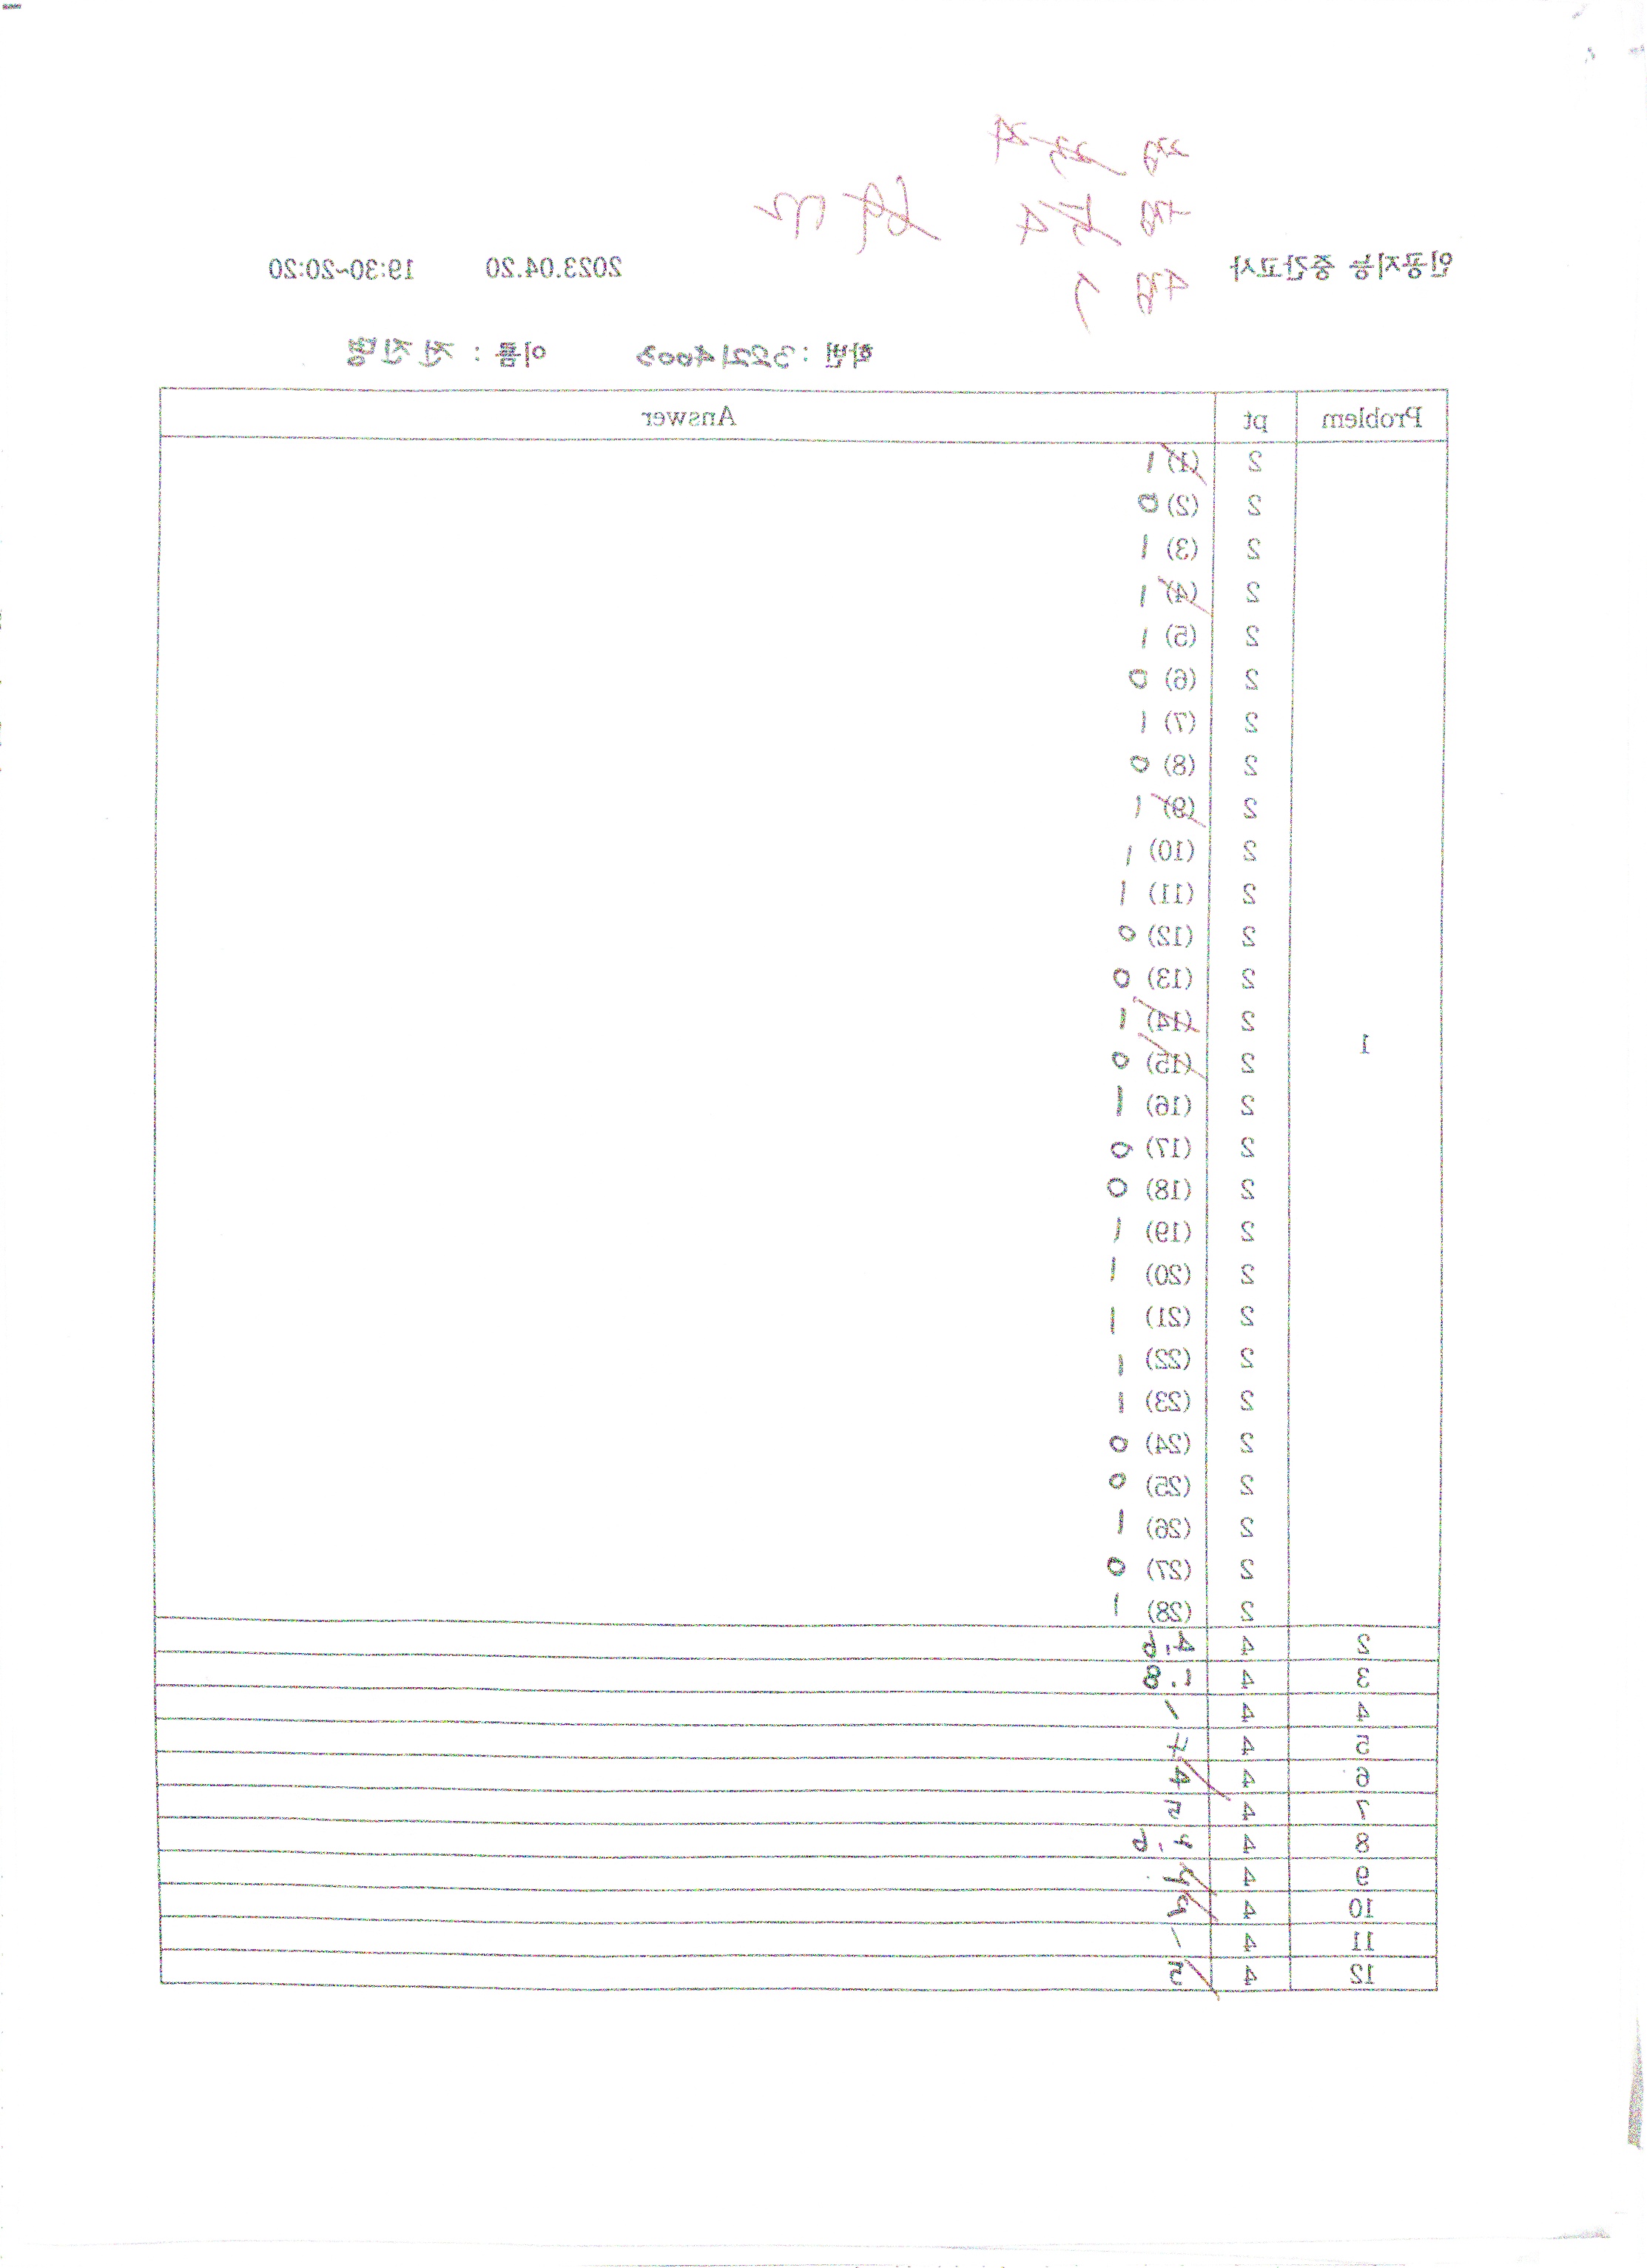 인공지능 중간고사 2023.04.20 19:30~20:20
학번 : 32214003 이름 : 전진명
Problem pt Answer
1
2 (1) 1
2 (2) 0
2 (3) 1
2 (4) 1
2 (5) 1
2 (6) 0
2 (7) 1
2 (8) 0
2 (9) 1
2 (10) 1
2 (11) 1
2 (12) 0
2 (13) 0
2 (14) 1
2 (15) 0
2 (16) 1
2 (17) 0
2 (18) 0
2 (19) 1
2 (20) 1
2 (21) 1
2 (22) 1
2 (23) 1
2 (24) 0
2 (25) 0
2 (26) 1
2 (27) 0
2 (28) 1
2 4 4.6
3 4 1.8
4 4 1
5 4 7
6 4 4
7 4 5
8 4
9 4
10 4
11 4 1
12 4 5